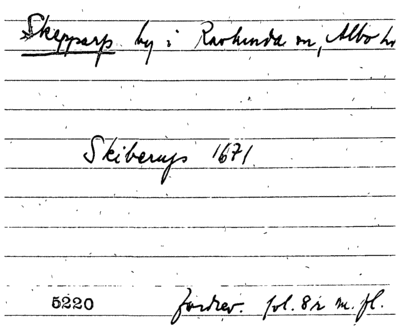 Skepparp by i Ravlunda sn, Albo h
Skiberup 1671
5220 Jordrev. fol. 82 m. fl.